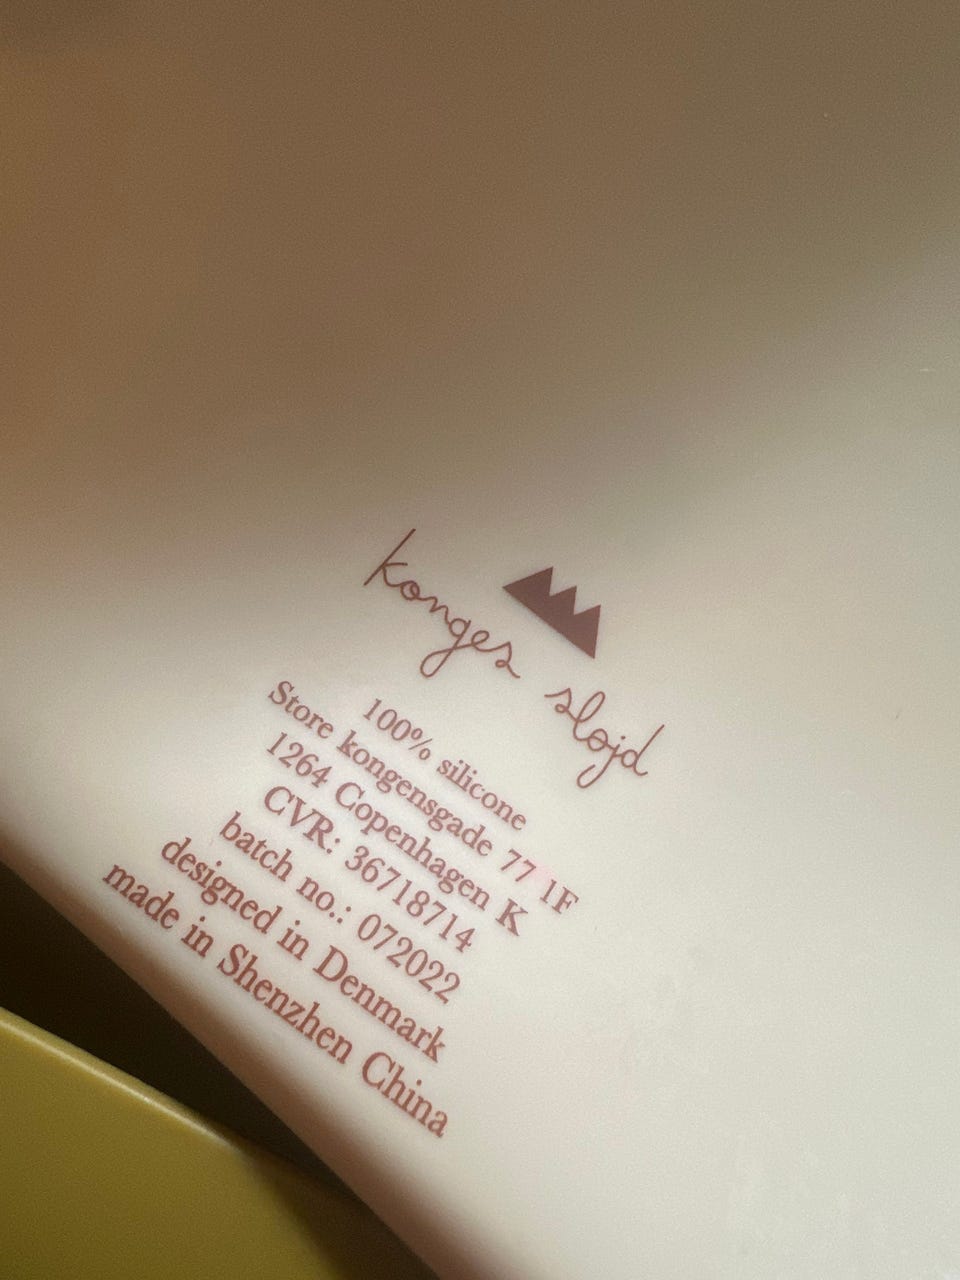 konges sløjd
100% silicone
Store kongensgade 77 1F
1264 Copenhagen K
CVR: 36718714
batch no.: 072022
designed in Denmark
made in Shenzhen China